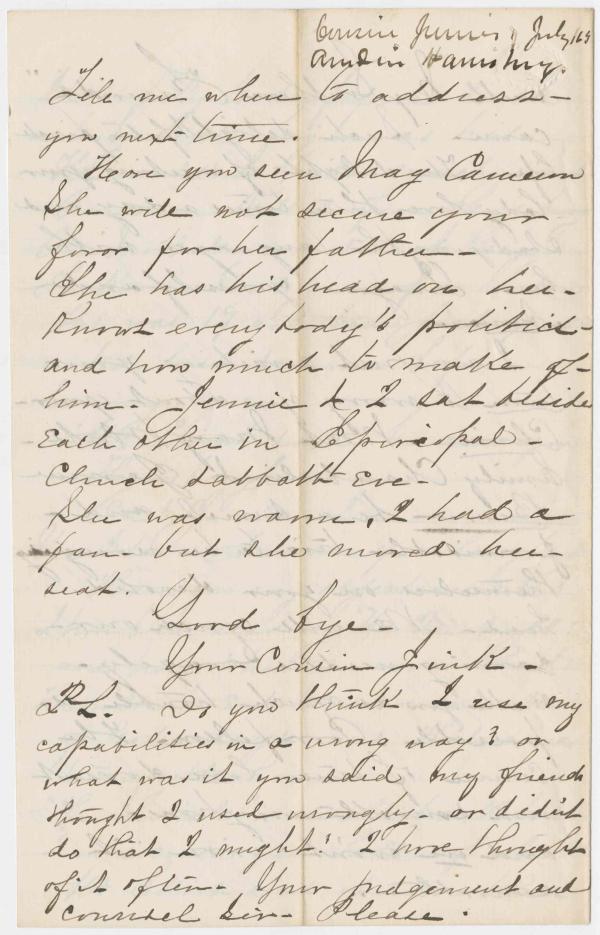 Cousin Jennie, July 169
Tell me where to address-
you next time.
Have you seen May Cameron
She will not secure your
favor for her father-
She has his head on her-
Knows everybody's politics-
and how much to make of-
him- Jennie & I sat beside
Each other in Episcopal-
Church Sabbath Eve-
She was warm, I had a
fan- but she moved her-
seat.
Good bye-
Your Cousin Jink-
P.S. Do you think I use my
capabilities in a wrong way? or
what was it you said my friends
thought I used wrongly- or didn't
do that I might? I have thought
of it often- Your judgement and
counsel sir- Please.